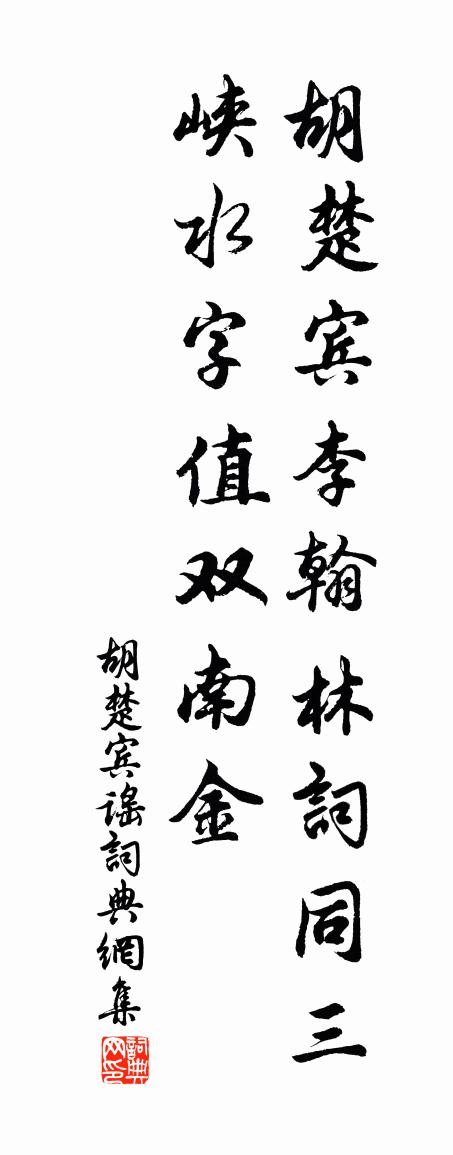 胡楚宾李翰林詞同三
峡水字值双南金
胡楚宾谣詞典網集
詞典
网印